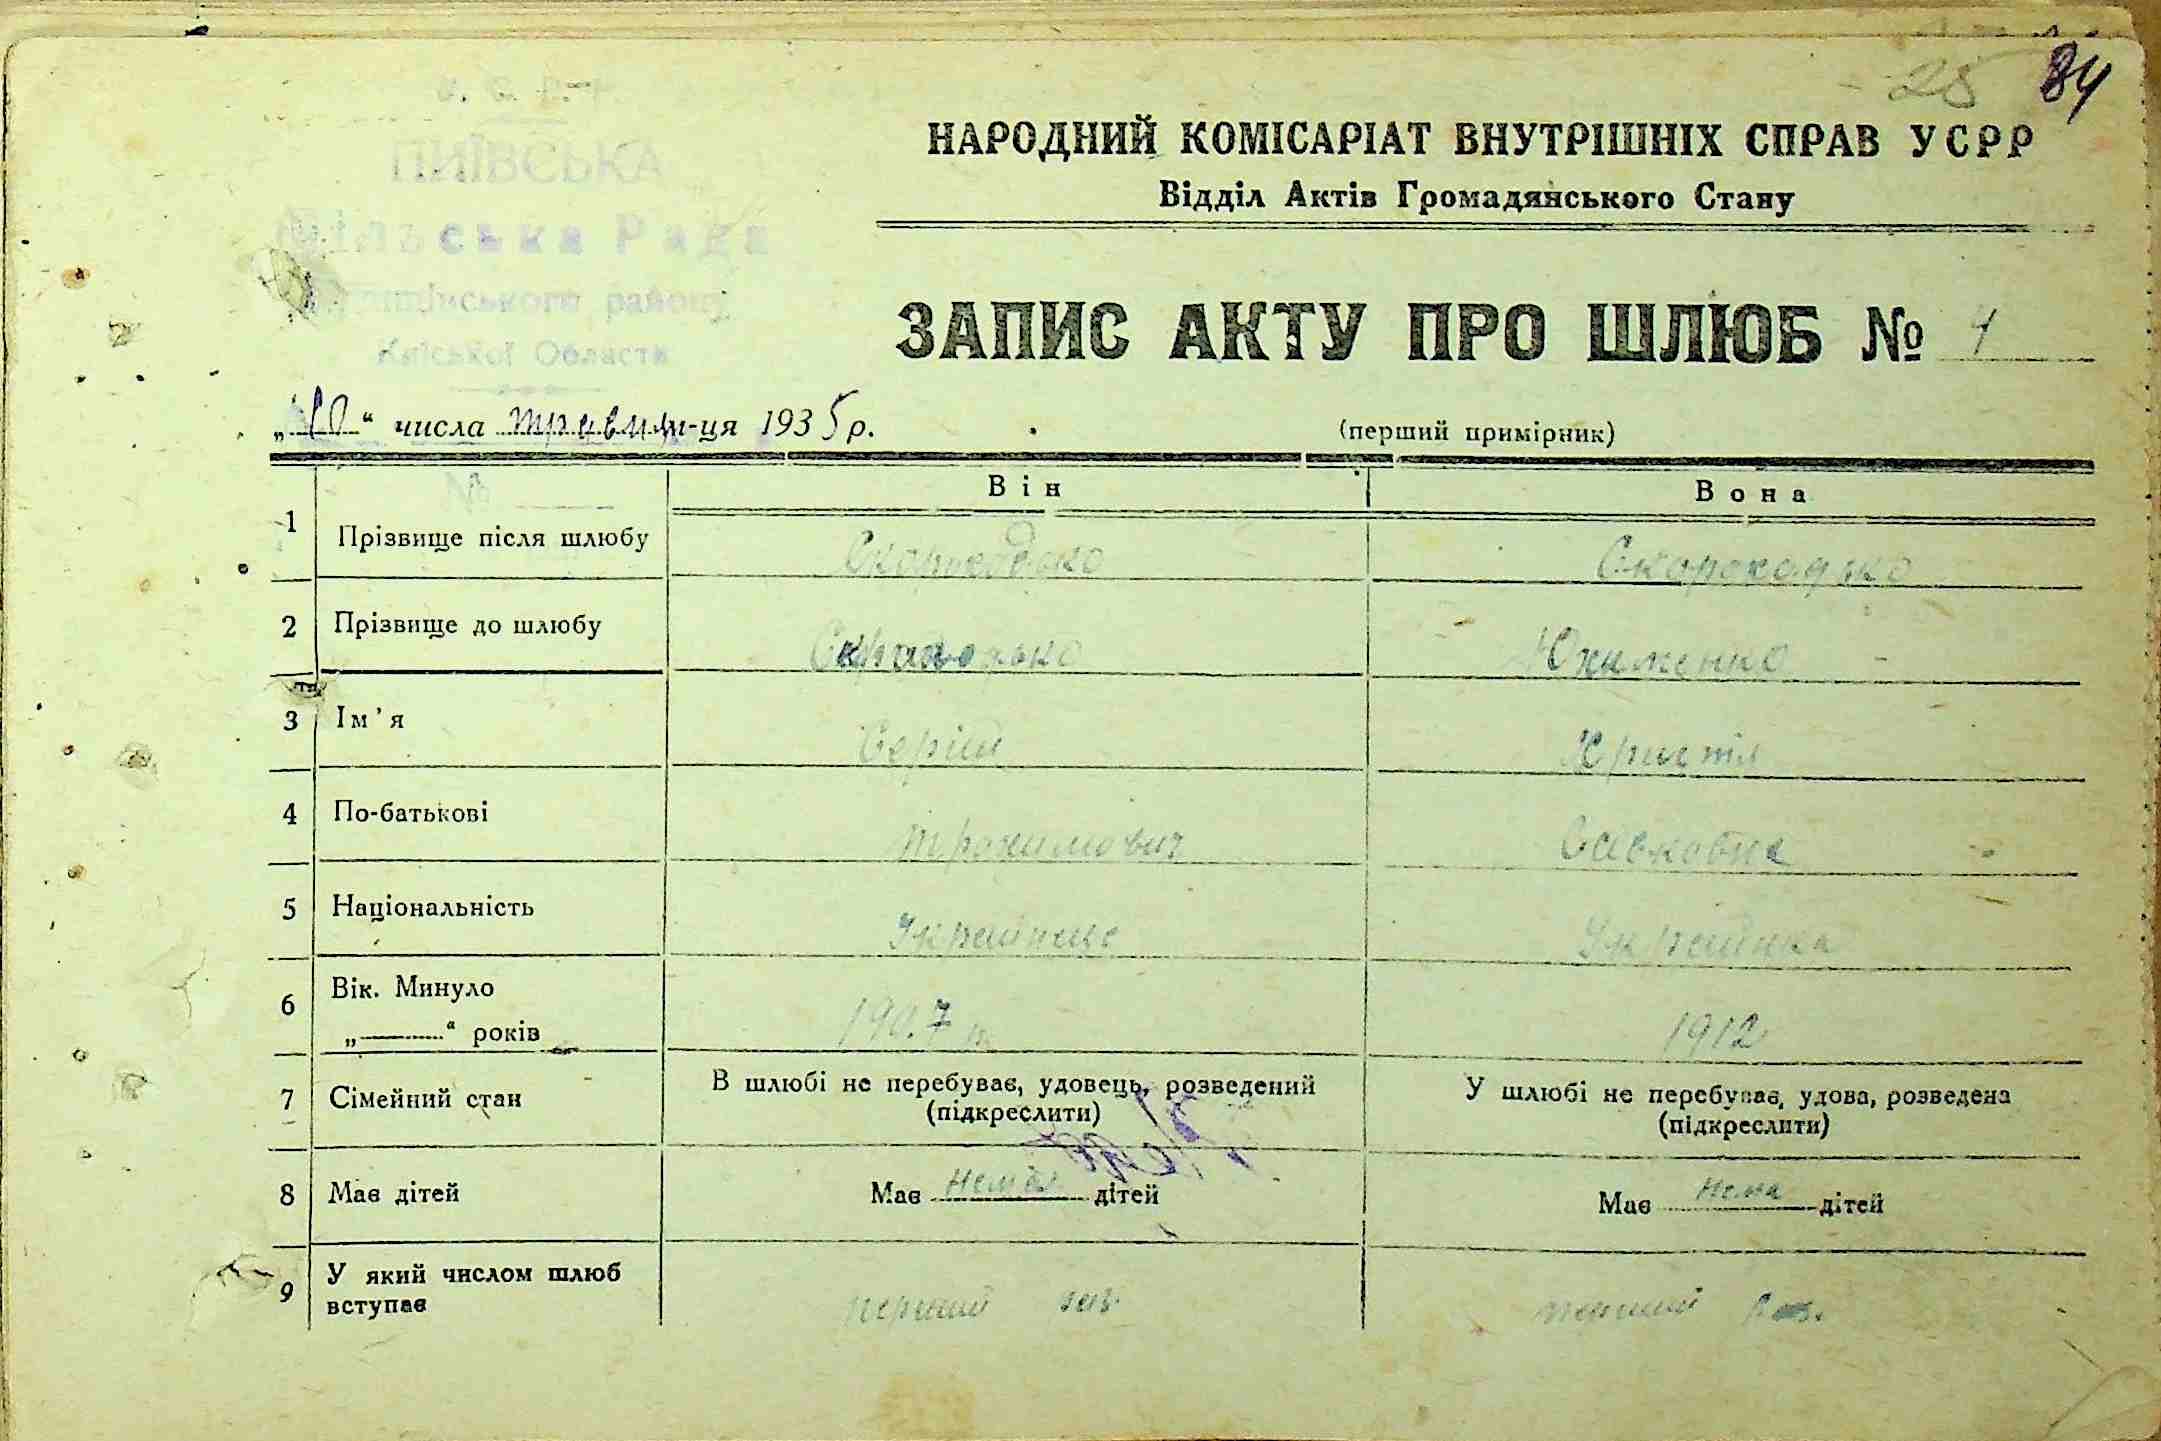 25 84
НАРОДНИЙ КОМІСАРІАТ ВНУТРІШНІХ СПРАВ УСРР
Відділ Актів Громадянського Стану
ПИЇВСЬКА
Сільська Рада
району
Київської Области
ЗАПИС АКТУ ПРО ШЛЮБ № 4
„10“ числа травня м-ця 1935 р.
(перший примірник)
№
Він Вона
1 Прізвище після шлюбу Скороходько Скороходько
2 Прізвище до шлюбу Юхименко
3 Ім'я Сергій Христя
4 По-батькові Трохимович Савковна
5 Національність Українец Українка
6 Вік. Минуло „ “ років 1907 1912
7 Сімейний стан В шлюбі не перебуває, удовець, розведений (підкреслити) У шлюбі не перебуває, удова, розведена (підкреслити)
8 Має дітей Має дітей Має нема дітей
9 У який числом шлюб вступає перший раз перший раз.